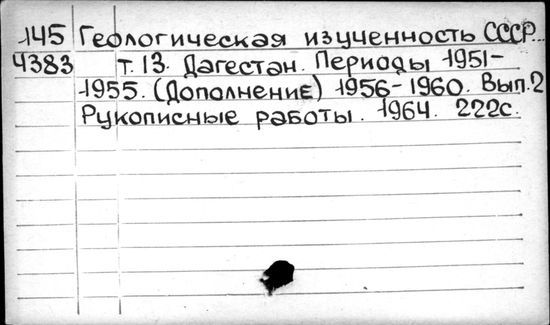 145 Геологическая изученность СССР.
4383 т. 13. Дагестан. Периоды 1951-
1955. (Дополнение) 1956-1960. Вып.2
Рукописные работы. 1964. 222с.